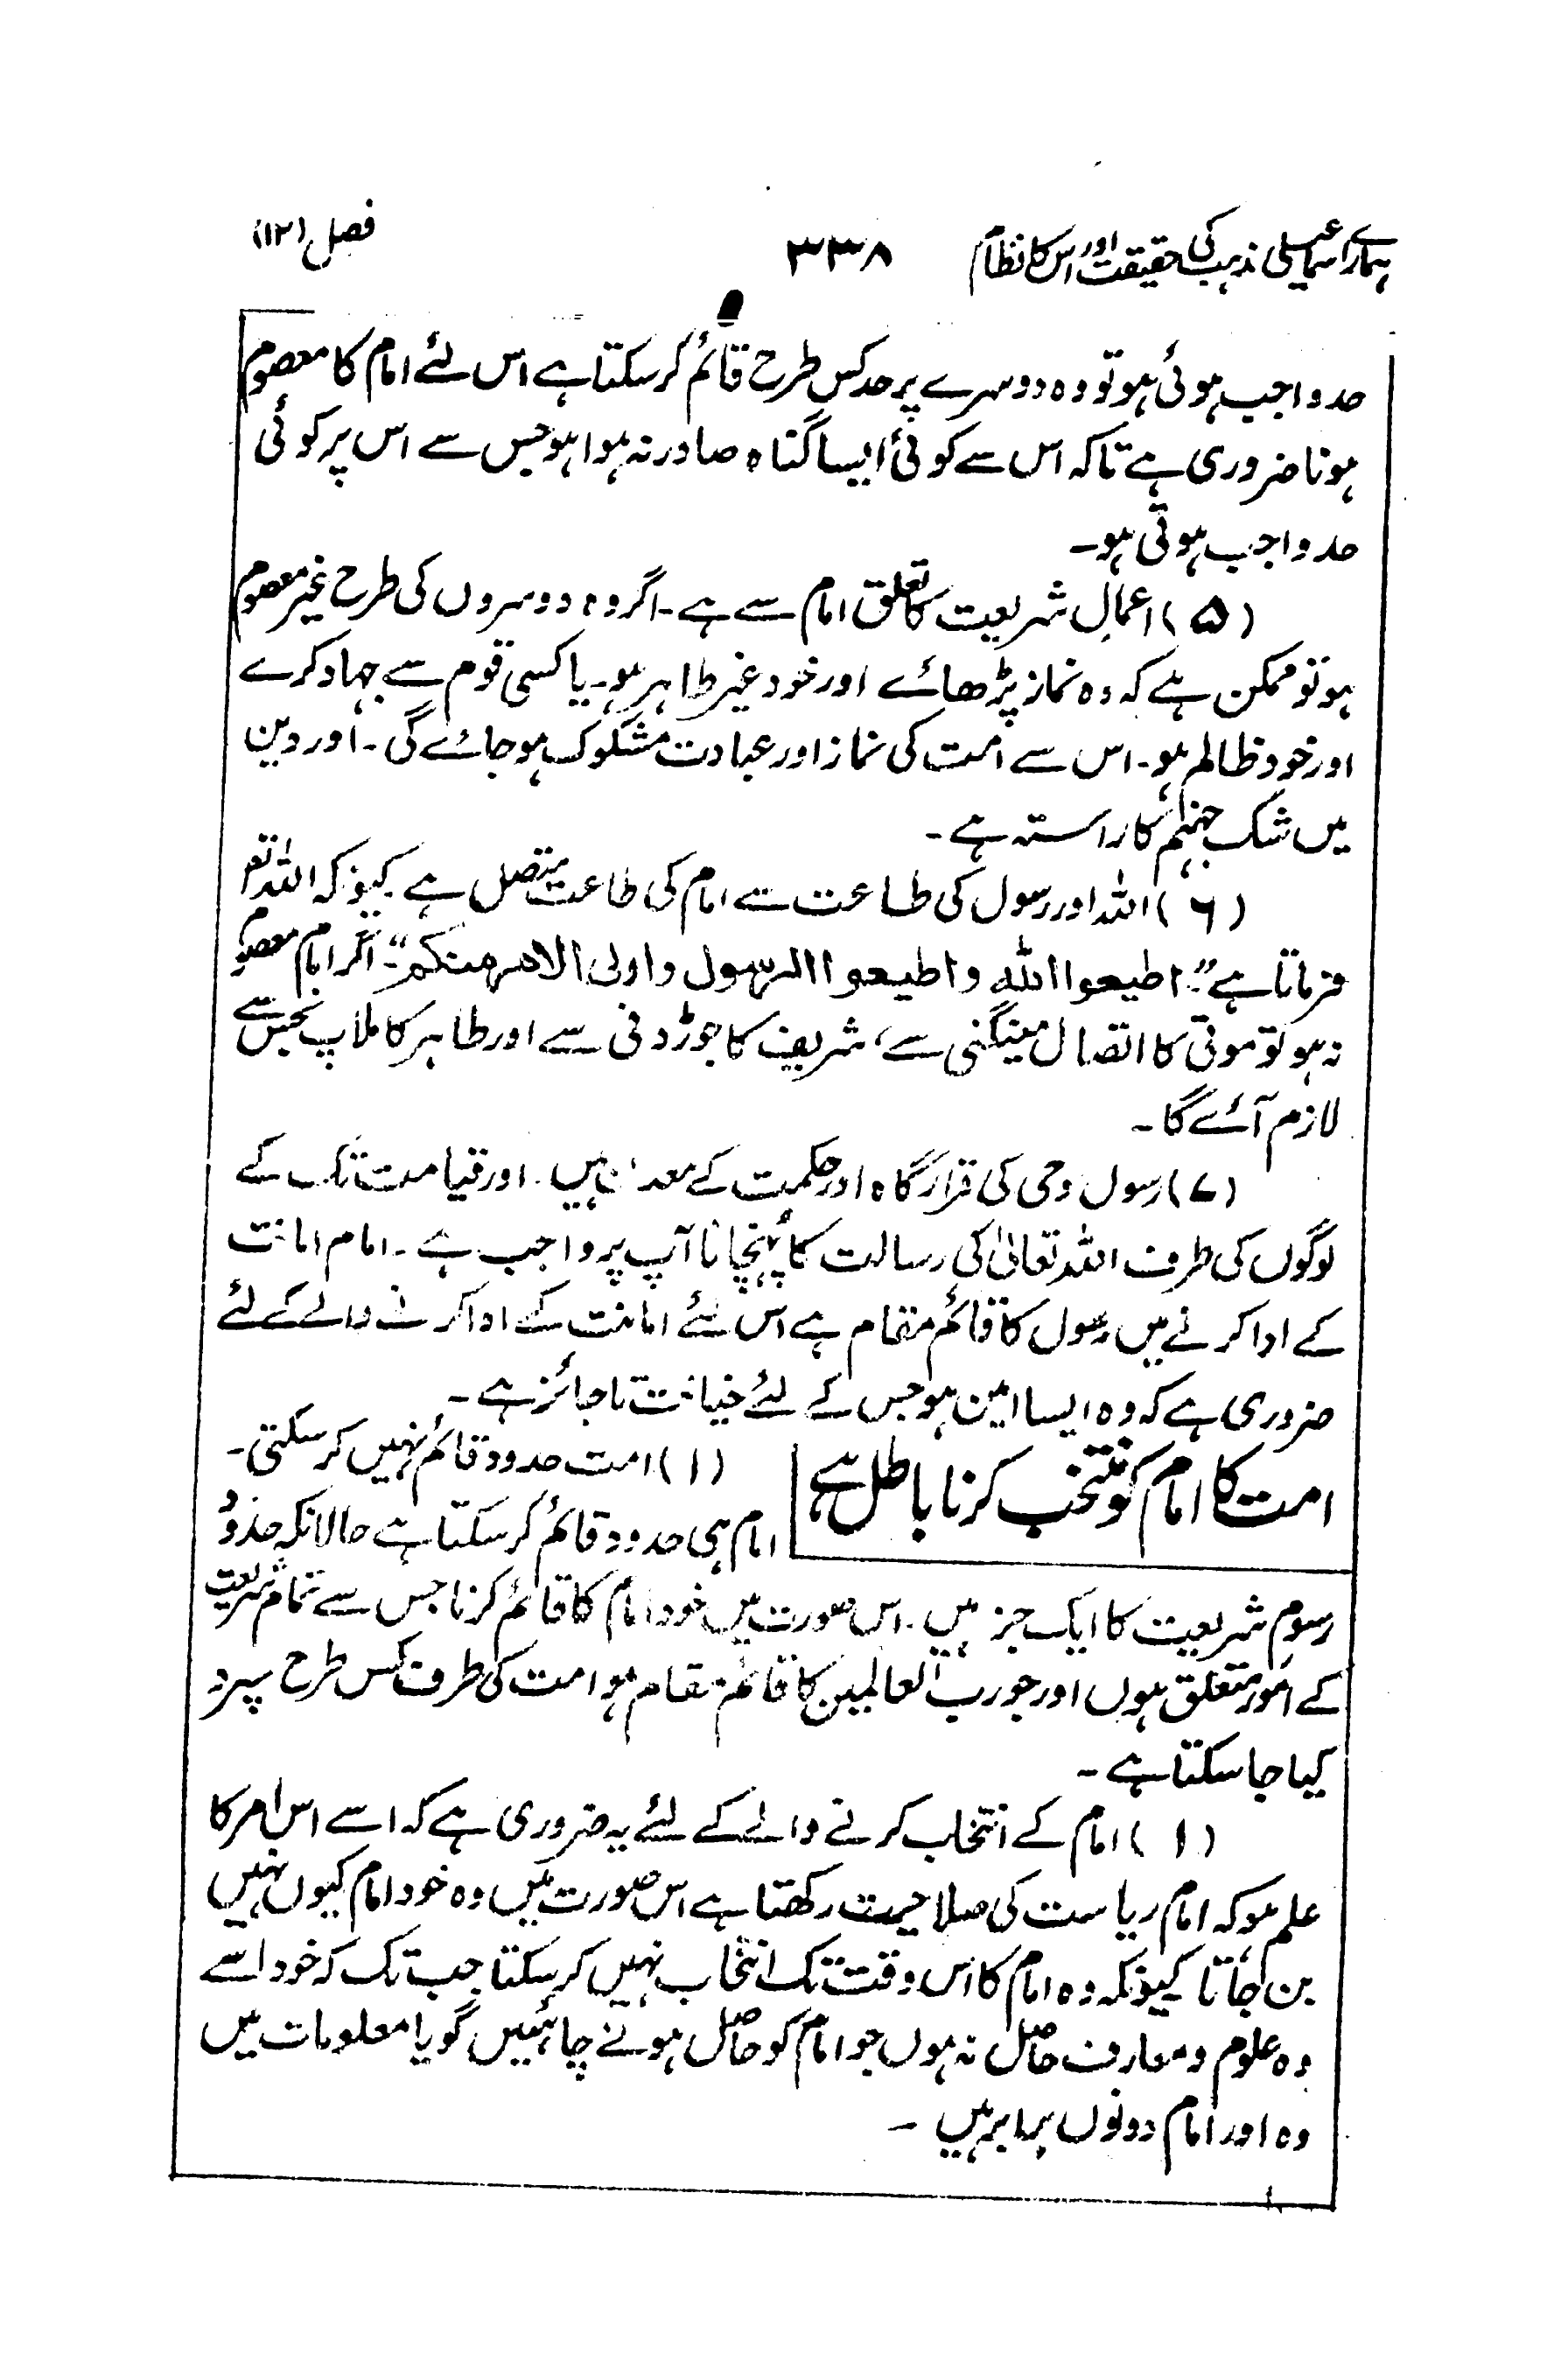 ہمارے اسماعیلی مذہب کی حقیقت اور اس کا نظام ۳۳۸ فصل (۱۲)
حد واجب ہوئی ہو تو وہ دوسرے پر حد کس طرح قائم کرسکتا ہے اس لئے امام کا معصوم
ہونا ضروری ہے تاکہ اس سے کوئی ایسا گناہ صادر نہ ہوا ہو جس سے اس پر کوئی
حد واجب ہوتی ہو۔
(۵) اعمالِ شریعت کا تعلق امام سے ہے۔ اگر وہ دوسروں کی طرح غیر معصوم
ہو تو ممکن ہے کہ وہ نماز پڑھائے اور خود غیر طاہر ہو۔ یا کسی قوم سے جہاد کرے
اور خود ظالم ہو۔ اس سے امت کی نماز اور عبادت مشکوک ہو جائے گی۔ اور دین
میں شک جہنم کا راستہ ہے۔
(۶) اللہ اور رسول کی طاعت سے امام کی طاعت متصل ہے کیونکہ اللہ تعو
فرماتا ہے:" اطیعوا اللہ واطیعوا الرسول واولی الامر منکم"۔ اگر امام معصوم
نہ ہو تو موتی کا اتصال مینگنی سے، شریف کا جوڑ دنی سے اور طاہر کا ملاپ نجس سے
لازم آئے گا۔
(۷) رسول وحی کی قرارگاہ اور حکمت کے معدن ہیں۔ اور قیامت تک کے
لوگوں کی طرف اللہ تعالیٰ کی رسالت کا پہنچانا آپ پر واجب ہے۔ امام امانت
کے ادا کرنے میں رسول کا قائم مقام ہے اس لئے امانت کے ادا کرنے والے کے لئے
ضروری ہے کہ وہ ایسا امین ہو جس کے لئے خیانت ناجائز ہے۔
امت کا امام کو منتخب کرنا باطل ہے
(۱) امت حدود قائم نہیں کرسکتی۔
امام ہی حدود قائم کرسکتا ہے حالانکہ حدود
رسومِ شریعت کا ایک جز ہیں۔ اس صورت میں خود امام کا قائم کرنا جس سے تمام شریعت
کے امور متعلق ہوں اور جو رب العالمین کا قائم مقام ہو امت کی طرف کس طرح سپرد
کیا جا سکتا ہے۔
(۱) امام کے انتخاب کرنے والے کے لئے یہ ضروری ہے کہ اسے اس امر کا
علم ہو کہ امام ریاست کی صلاحیت رکھتا ہے اس صورت میں وہ خود امام کیوں نہیں
بن جاتا کیونکہ وہ امام کا اس وقت تک انتخاب نہیں کرسکتا جب تک کہ خود اسے
وہ علوم و معارف حاصل نہ ہوں جو امام کو حاصل ہونے چاہئیں گویا معلومات میں
وہ اور امام دونوں برابر ہیں۔